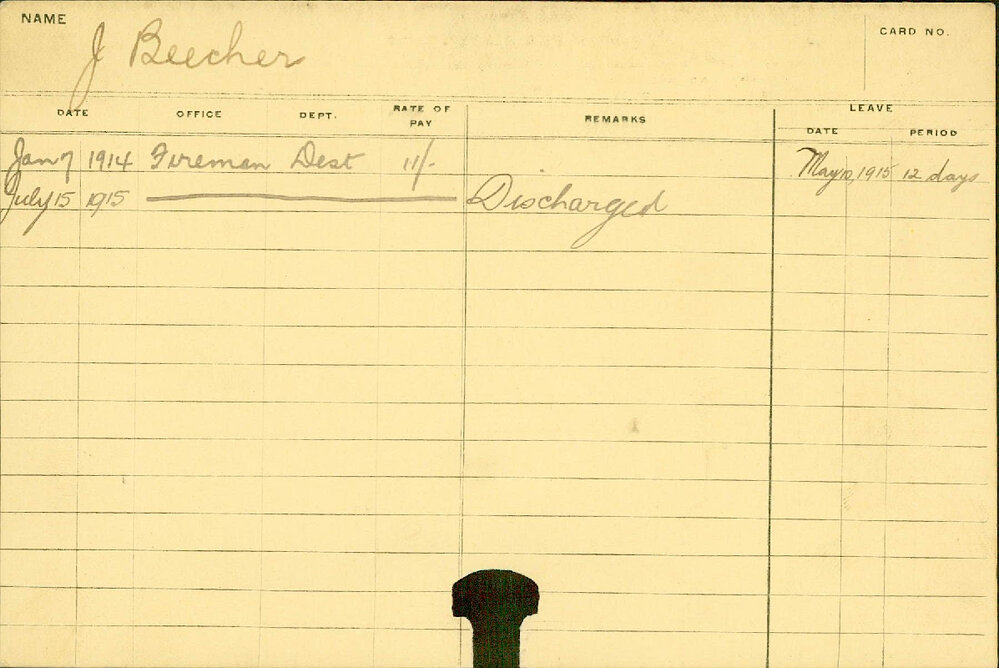 NAME
J Beecher
CARD NO.
DATE OFFICE DEPT. RATE OF PAY REMARKS LEAVE
DATE PERIOD
Jan 7 1914 Fireman Dest 11/- May 10, 1915 12 days
July 15 1915 Discharged